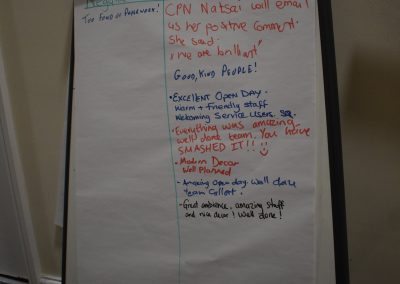 TOO FOND OF PAPERWORK!
CPN Natsai will email
us her positive comment.
She said
"we are brilliant"
GOOD, KIND PEOPLE!
• EXCELLENT OPEN DAY.
Warm + friendly staff
Welcoming Service Users.
• Everything was amazing
well done team. You have
SMASHED IT!!
• Modern Decor
Well Planned
• Amazing Open day. Well done
Team
• Great ambience, amazing staff
and nice decor! Well done!